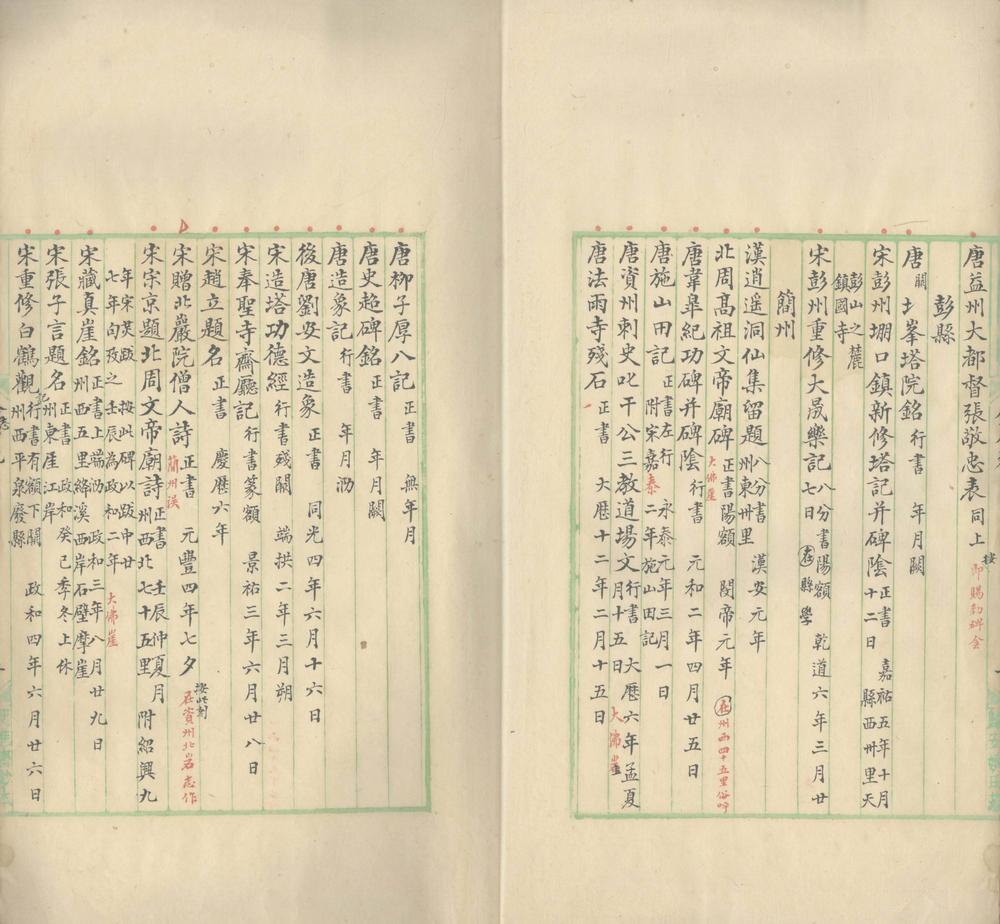 唐益州大都督張敬忠表同上 按即賜勅碑全
彭縣
唐闕北峯塔院銘行書 年月闕
宋彭州堋口鎮新修塔記并碑陰正書 嘉祐五年十月十二日 縣西卅里天
彭山之麓鎮國寺
宋彭州重修大晟樂記八分書陽額 乾道六年三月廿七日 在縣學
簡州
漢逍遥洞仙集留題八分書 漢安元年 州東卅里
北周髙祖文帝廟碑正書陽額 閔帝元年 大佛崖 在州西四十五里俗呼
唐韋臯紀功碑并碑陰行書 元和二年四月廿五日
唐施山田記正書左行 永泰元年三月一日 附宋嘉泰二年施山田記
唐資州刺史叱干公三教道場文行書 大厯六年孟夏月十五日 大佛崖
唐法雨寺殘石正書 大厯十二年二月十五日
唐柳子厚八記正書 無年月
唐史超碑銘正書 年月闕
唐造象記行書 年月泐
後唐劉安文造象正書 同光四年六月十六日
宋造塔功德經行書殘闕 端拱二年三月朔
宋奉聖寺齋廳記行書篆額 景祐三年六月廿八日
宋趙立題名正書 慶厯六年
宋贈北巖院僧人詩正書 元豐四年七夕 簡州誤 按此刻在資州北岩志作
宋宗京題北周文帝廟詩正書 壬辰仲夏月 州西北七十五里 附紹興九
年宋英跋 按此碑以跋中廿七年向攷之壬辰為政和二年 大佛崖
宋藏真崖銘正書上端泐 政和三年八月廿九日 州西五里絳溪西岸石壁摩崖
宋張子言題名正書 政和癸巳季冬上休 州東北江岸
宋重修白鶴觀記行書有額下闕 政和四年六月廿六日 州西平泉廢縣